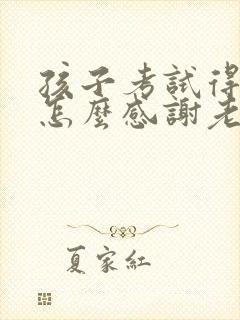 孩子考試得
怎麼感謝老
夏家紅